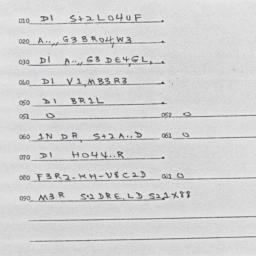 010 DI S+2L04UF.
020 A..,, G3BR04,W3
030 DI A..,, G3DE4,GL,.
040 DI V1,MB3R3
050 DI BR1L
051 0 052 0
060 1N DR, S+2A..D 061 0
070 DI H044..R
080 F3R2-KH-V8C2D 081 0
090 M3R S+2DRE.LD S21X88